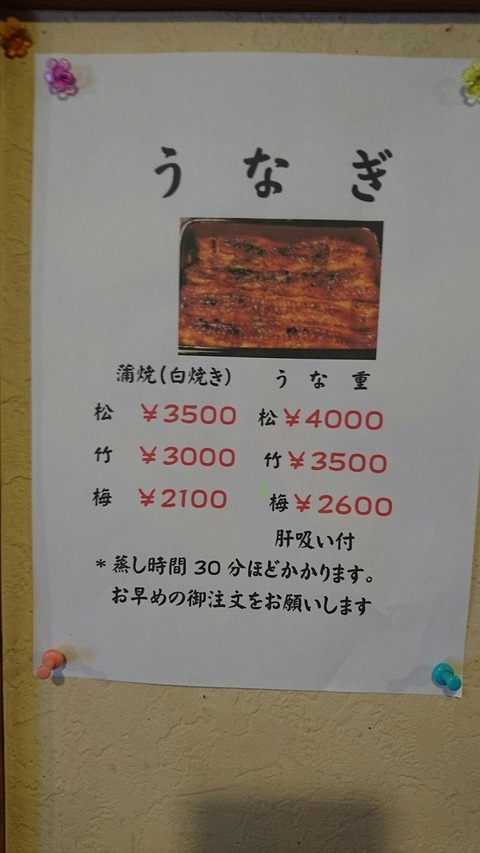 うなぎ
蒲焼(白焼き) うな重
松 ¥3500 松¥4000
竹 ¥3000 竹¥3500
梅 ¥2100 梅¥2600
肝吸い付
*蒸し時間30分ほどかかります。
お早めの御注文をお願いします